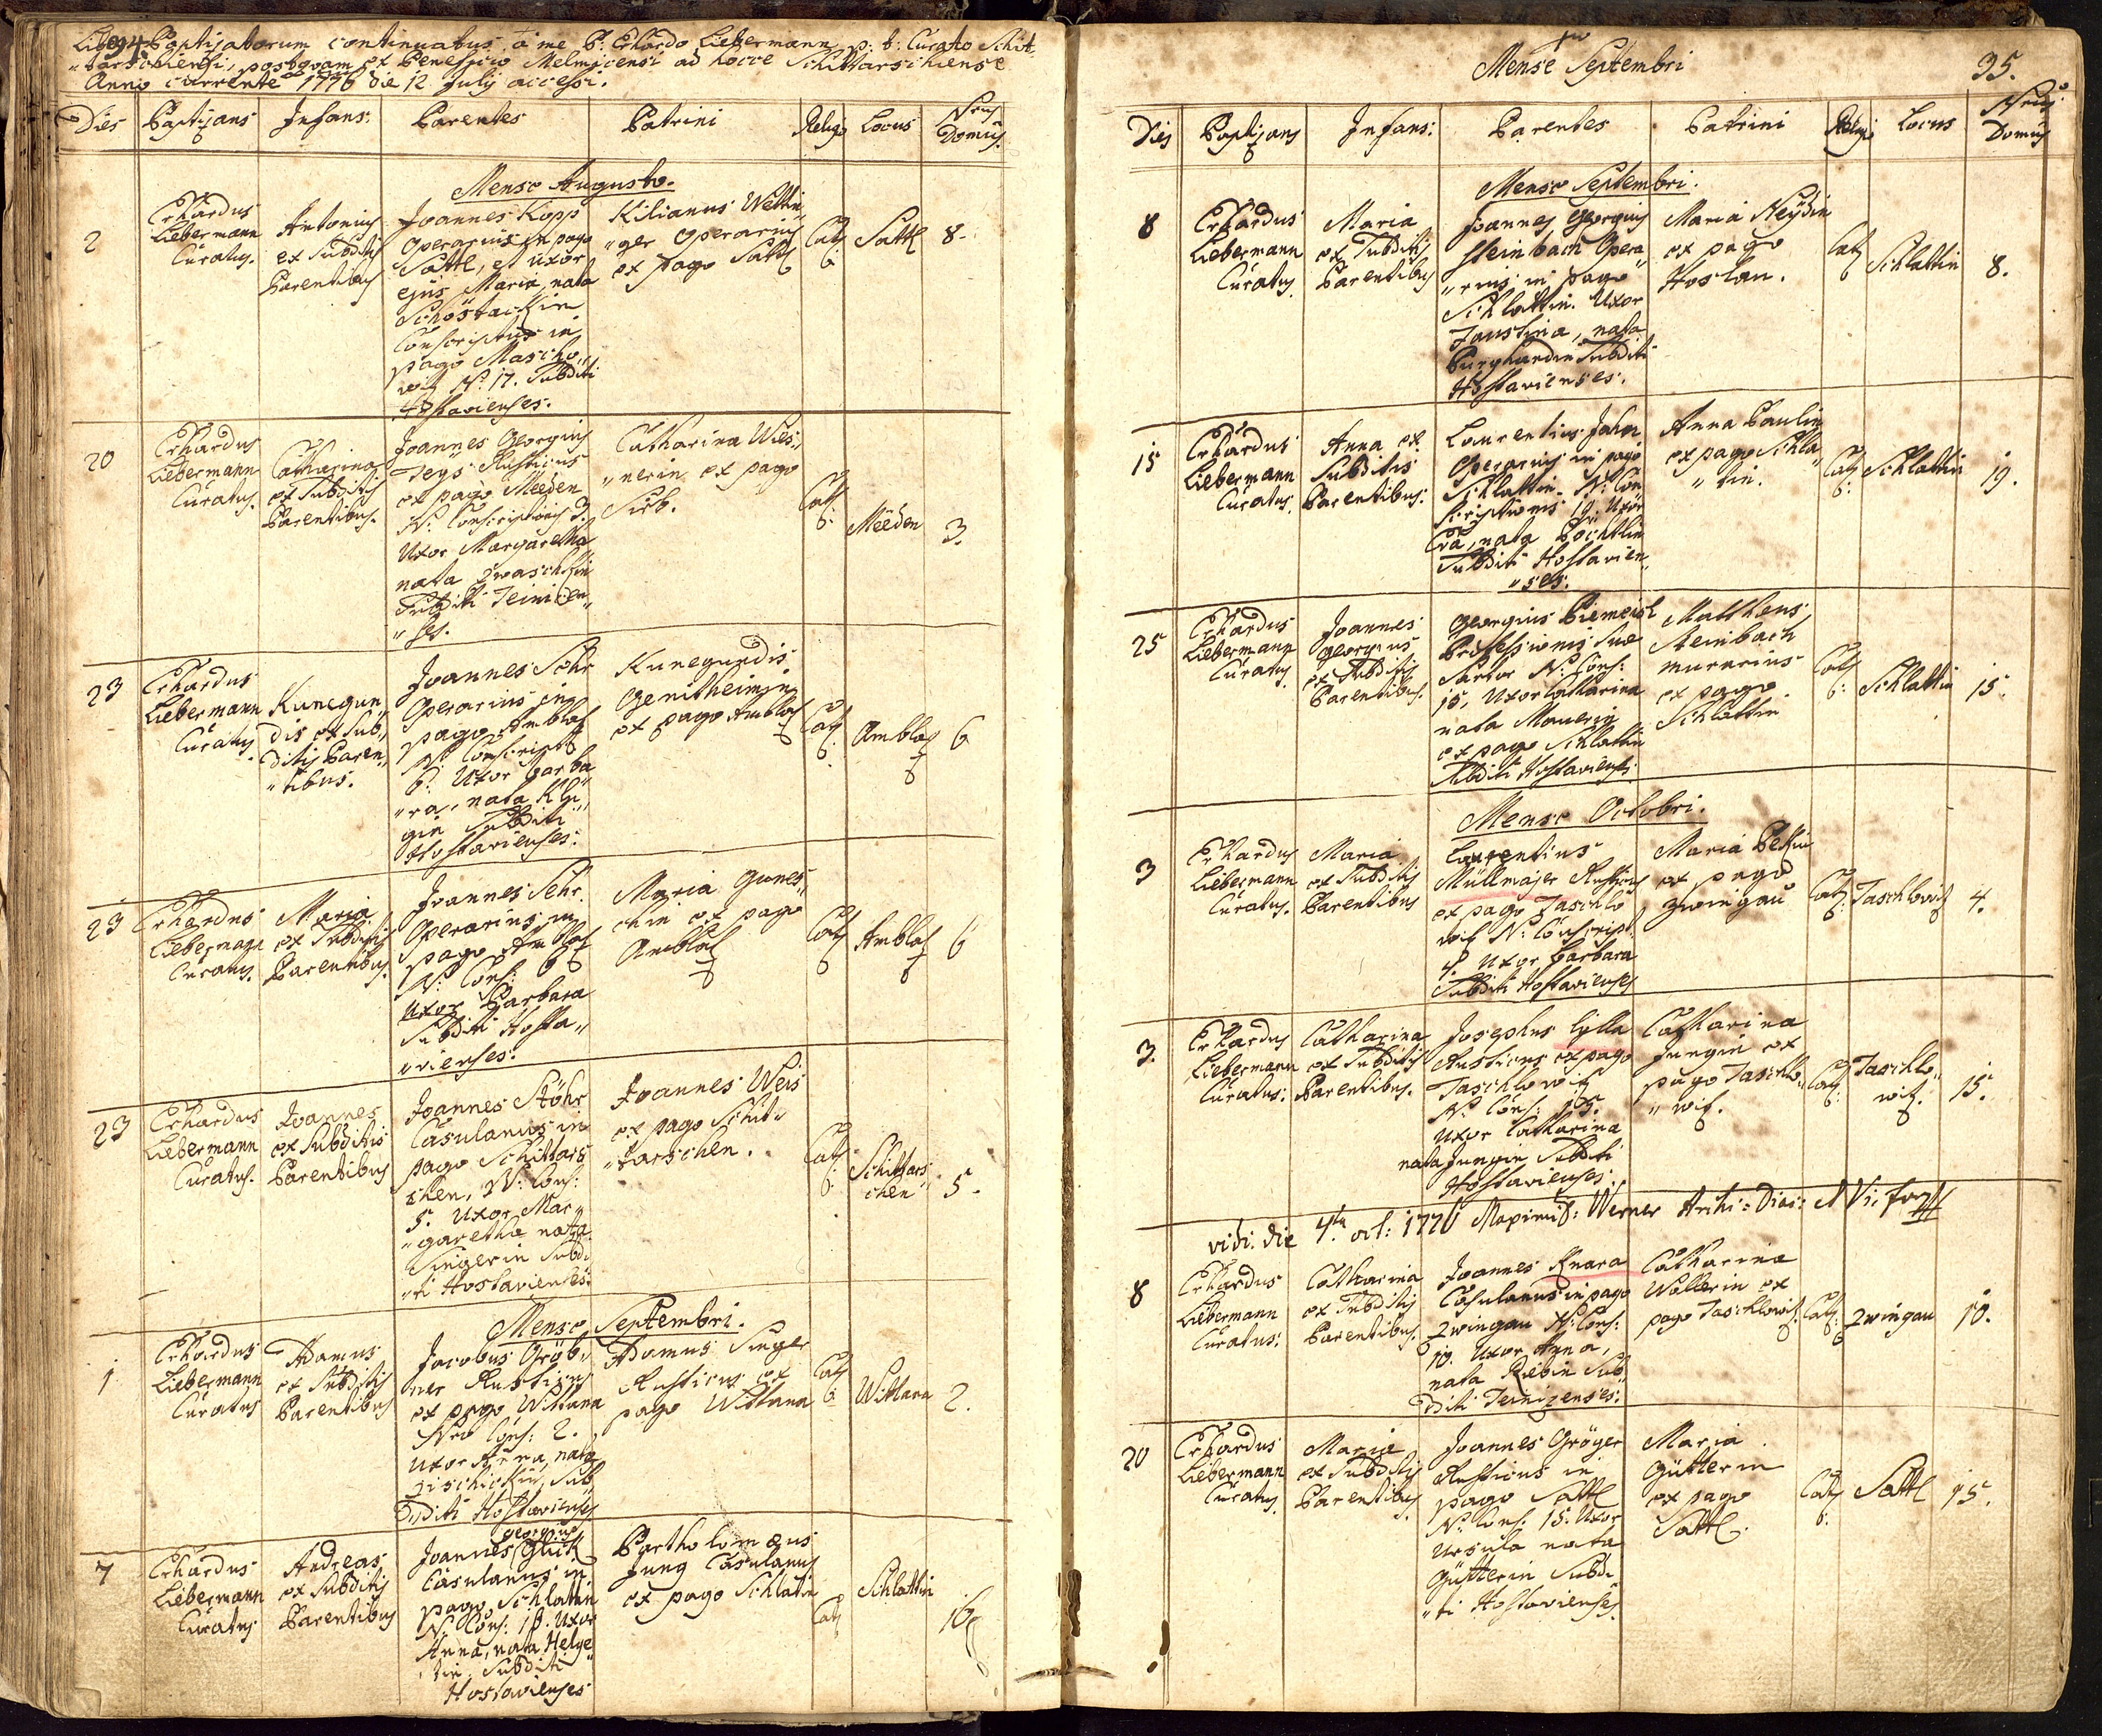 94. Liber Baptisatorum continuatus à me P: Erhardo Liebermann p: t: Curato Schit-
"tarschiensi, postquam ex Beneficio Melmicensi ad hocce Schittarschiense
Anno currente 1776 die 12 July accessi.
Dies Baptisans Infans: Parentes Patrini Religio Locus Nrus Domus.
Mense Augusto.
2
Erhardus
Liebermann
Curatus.
Antonius
ex Subditis
Parentibus
Joannes Kopp
Operarius in pago
Sattl, et uxor
ejus Maria, nata
Schöstackin
Conscriptus in
pago Mascho"
witz N: 17. Subditi
Hostavienses.
Kilianus Wettin
"ger Operarius
ex pago Sattl
Cath:
Sattl
8.
20
Erhardus
Liebermann
Curatus.
Catharina
ex Subditis
Parentibus.
Joannes Georgius
Teys Rusticus
ex pago Meeden
N: Conscriptionis 3.
Uxor Margaretha
nata Zwaschkin
Subditi Teinicen"
"ses.
Catharina Wies"
"nerin ex pago
Sirb.
Cath:
Meeden
3.
23
Erhardus
Liebermann
Curatus.
Kunegun"
dis ex Sub"
ditis Paren"
"tibus.
Joannes Sehr
Operarius in
pago Amblas
N: Conscript:
6. Uxor Barba
"ra, nata Klu"
gin Subditi
Hostavienses:
Kunegundis
Genitheimin
ex pago Amblas
Cath:
Amblas
6
23
Erhardus
Liebermann
Curatus.
Maria
ex Subditis
Parentibus.
Joannes Sehr.
Operarius in
pago Amblas
N: Cons: 6
Uxor Barbara
Subditi Hosta"
"vienses.
Maria Gunes"
chin ex pago
Amblas
Cath:
Amblas
6
23
Erhardus
Liebermann
Curatus.
Joannes
ex Subditis
Parentibus
Joannes Stöhr
Casulanus in
pago Schittars
chen, N: Cons:
5. Uxor Mar"
"garetha nata
Singerin Subdi
"ti Hostavienses.
Joannes Weis
ex pago Schit"
"tarschen.
Cath:
Schittars
chen
5.
Mense Septembri.
1
Erhardus
Liebermann
Curatus
Adamus
ex Subditis
Parentibus
Jacobus Gröb"
ner Rusticus
ex pago Wittana
Nro Cons: 2.
Uxor Anna, nata
Zischickin, Sub"
diti Hostavienses
Adamus Singer
Rusticus ex
pago Wittana
Cath:
Wittana
2.
7
Erhardus
Liebermann
Curatus
Andreas
ex Subditis
Parentibus
Georgius
Joannes Glück
Casulanus in
pago Schlattin
N: Cons: 16. Uxor
Anna, nata Helge
tin Subditi
Hostavienses
Bartholomæus
Jung Casulanus
ex pago Schlatin
Cath
Schlattin
16
Mense Septembri
95.
Dies Baptisans Infans: Parentes Patrini Religio Locus Nrus: Domus
Mense Septembri.
8
Erhardus
Liebermann
Curatus.
Maria
ex Subditis
Parentibus
Joannes Georgius
Steinbach Opera
"rius in pago
Schlattin. Uxor
Faustina, nata
Burghardin Subditi
Hostavienses.
Maria Neydin
ex pago
Hoslau.
Cath
Schlattin
8.
15
Erhardus
Liebermann
Curatus.
Anna ex
Subditis
Parentibus.
Laurentius Jahn
Operarius in pago
Schlattin. N: Con
scriptionis 19. Uxor
Eva, nata Böchtlin
Subditi Hostavien"
"ses.
Anna Paulin
ex pago Schla"
"tin.
Cath:
Schlattin
19.
25
Erhardus
Liebermann
Curatus.
Joannes
Georgius
ex Subditis
Parentibus.
Georgius Biemeisl
Professionis suæ
Sartor N: Cons:
15. Uxor Catharina
nata Mauerin
ex pago Schlattin
Subditi Hostavienses.
Matthæus
Steinbach
murarius
ex pago
Schlattin
Cath:
Schlattin
15.
Mense Octobri.
3
Erhardus
Liebermann
Curatus.
Maria
ex Subditis
Parentibus
Laurentius
Müllmajer Rusticus
ex pago Taschlo
witz N: Conscript:
4. Uxor Barbara
Subditi Hostavienses
Maria Peltin
ex pago
Zwingau
Cath:
Taschlowitz
4.
3.
Erhardus
Liebermann
Curatus:
Catharina
ex Subditis
Parentibus.
Josephus Lylla
Rusticus ex pago
Taschlowitz
N: Cons: 15.
Uxor Catharina
nata Jungin Subditi
Hostavienses:
Catharina
Jungin ex
pago Taschlo"
"witz.
Cath:
Taschlo"
witz.
15.
vidi. die 4ta oct: 1776 Maximil: Werner Archi-Diac: et Vi: for
8
Erhardus
Liebermann
Curatus:
Catharina
ex Subditis
Parentibus.
Joannes Knara
Casulanus in pago
Zwingau N: Cons:
10. Uxor Anna,
nata Riebin Sub"
diti Teinizenses:
Catharina
Wallerin ex
pago Taschlowitz.
Cath:
Zwingau
10.
20
Erhardus
Liebermann
Curatus.
Maria
ex Subditis
Parentibus.
Joannes Gröger
Rusticus in
pago Sattl
N: Cons. 15. Uxor
Ursula nata
Güttlerin Subdi
"ti Hostavienses.
Maria
Güttlerin
ex pago
Sattl.
Cath:
Sattl
15.